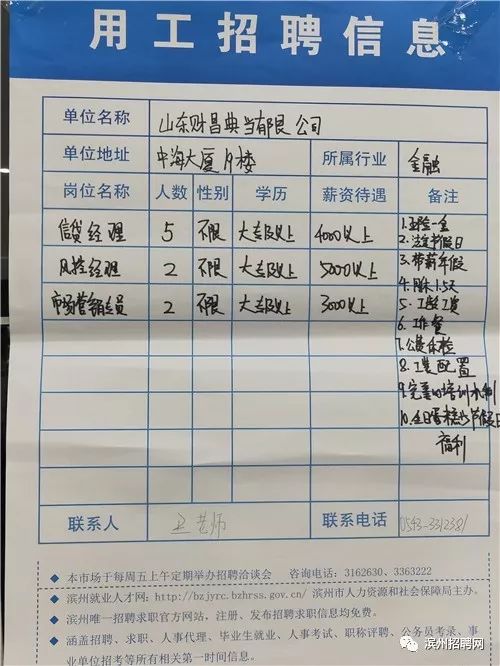 用工招聘信息
单位名称 山东财昌典当有限公司
单位地址 中海大厦19楼 所属行业 金融
岗位名称 人数 性别 学历 薪资待遇 备注
信贷经理 5 不限 大专及以上 4000以上
风控经理 2 不限 大专及以上 5000以上
市场营销专员 2 不限 大专及以上 3000以上
1.五险一金
2.法定节假日
3.带薪年假
4.月休1.5天
5.工龄工资
6.工作餐
7.公费体检
8.工装配置
9.完善的培训机制
10.生日蛋糕以节假日
福利
联系人 老师 联系电话 0543-3312381
本市场于每周五上午定期举办招聘洽谈会 咨询电话:3162630、3363222
滨州就业人才网:http://bzjyrc.bzhrss.gov.cn/ 滨州市人力资源和社会保障局主办。
滨州唯一招聘求职官方网站,注册、发布招聘求职信息均免费。
涵盖招聘、求职、人事代理、毕业生就业、人事考试、职称评聘、公务员考录、事
业单位招考等所有相关第一时间信息。
滨州招聘网